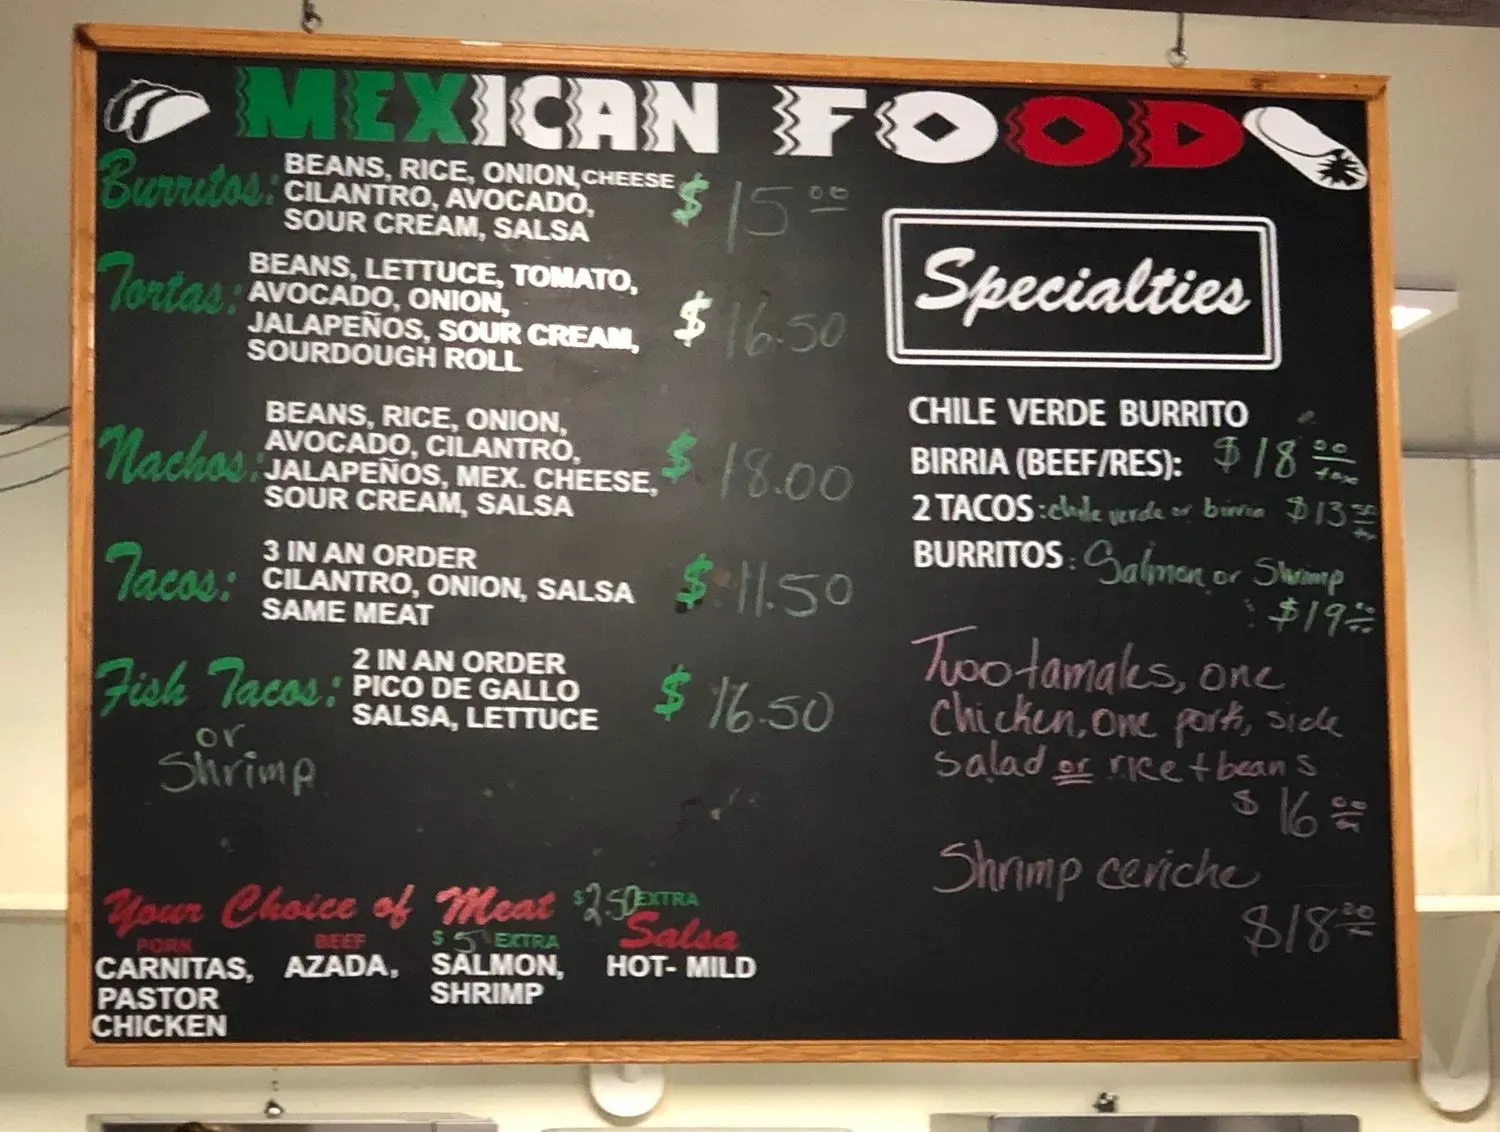 MEXICAN FOOD
Burritos: BEANS, RICE, ONION, CHEESE
CILANTRO, AVOCADO,
SOUR CREAM, SALSA
$ 15.00
Tortas: BEANS, LETTUCE, TOMATO,
AVOCADO, ONION,
JALAPEÑOS, SOUR CREAM,
SOURDOUGH ROLL
$ 16.50
Nachos: BEANS, RICE, ONION,
AVOCADO, CILANTRO,
JALAPEÑOS, MEX. CHEESE,
SOUR CREAM, SALSA
$ 18.00
Tacos: 3 IN AN ORDER
CILANTRO, ONION, SALSA
SAME MEAT
$ 11.50
Fish Tacos: 2 IN AN ORDER
PICO DE GALLO
SALSA, LETTUCE
$ 16.50
or
Shrimp
Your Choice of Meat $2.50 EXTRA
PORK
CARNITAS,
PASTOR
CHICKEN
BEEF
AZADA,
$ 5 EXTRA
SALMON,
SHRIMP
Salsa
HOT- MILD
Specialties
CHILE VERDE BURRITO
BIRRIA (BEEF/RES): $18.00 + tax
2 TACOS: chile verde or birria $13.50
BURRITOS: Salmon or Shrimp
$19
Two tamales, one
chicken, one pork, side
salad or rice + beans
$16.00
Shrimp ceviche
$18.00